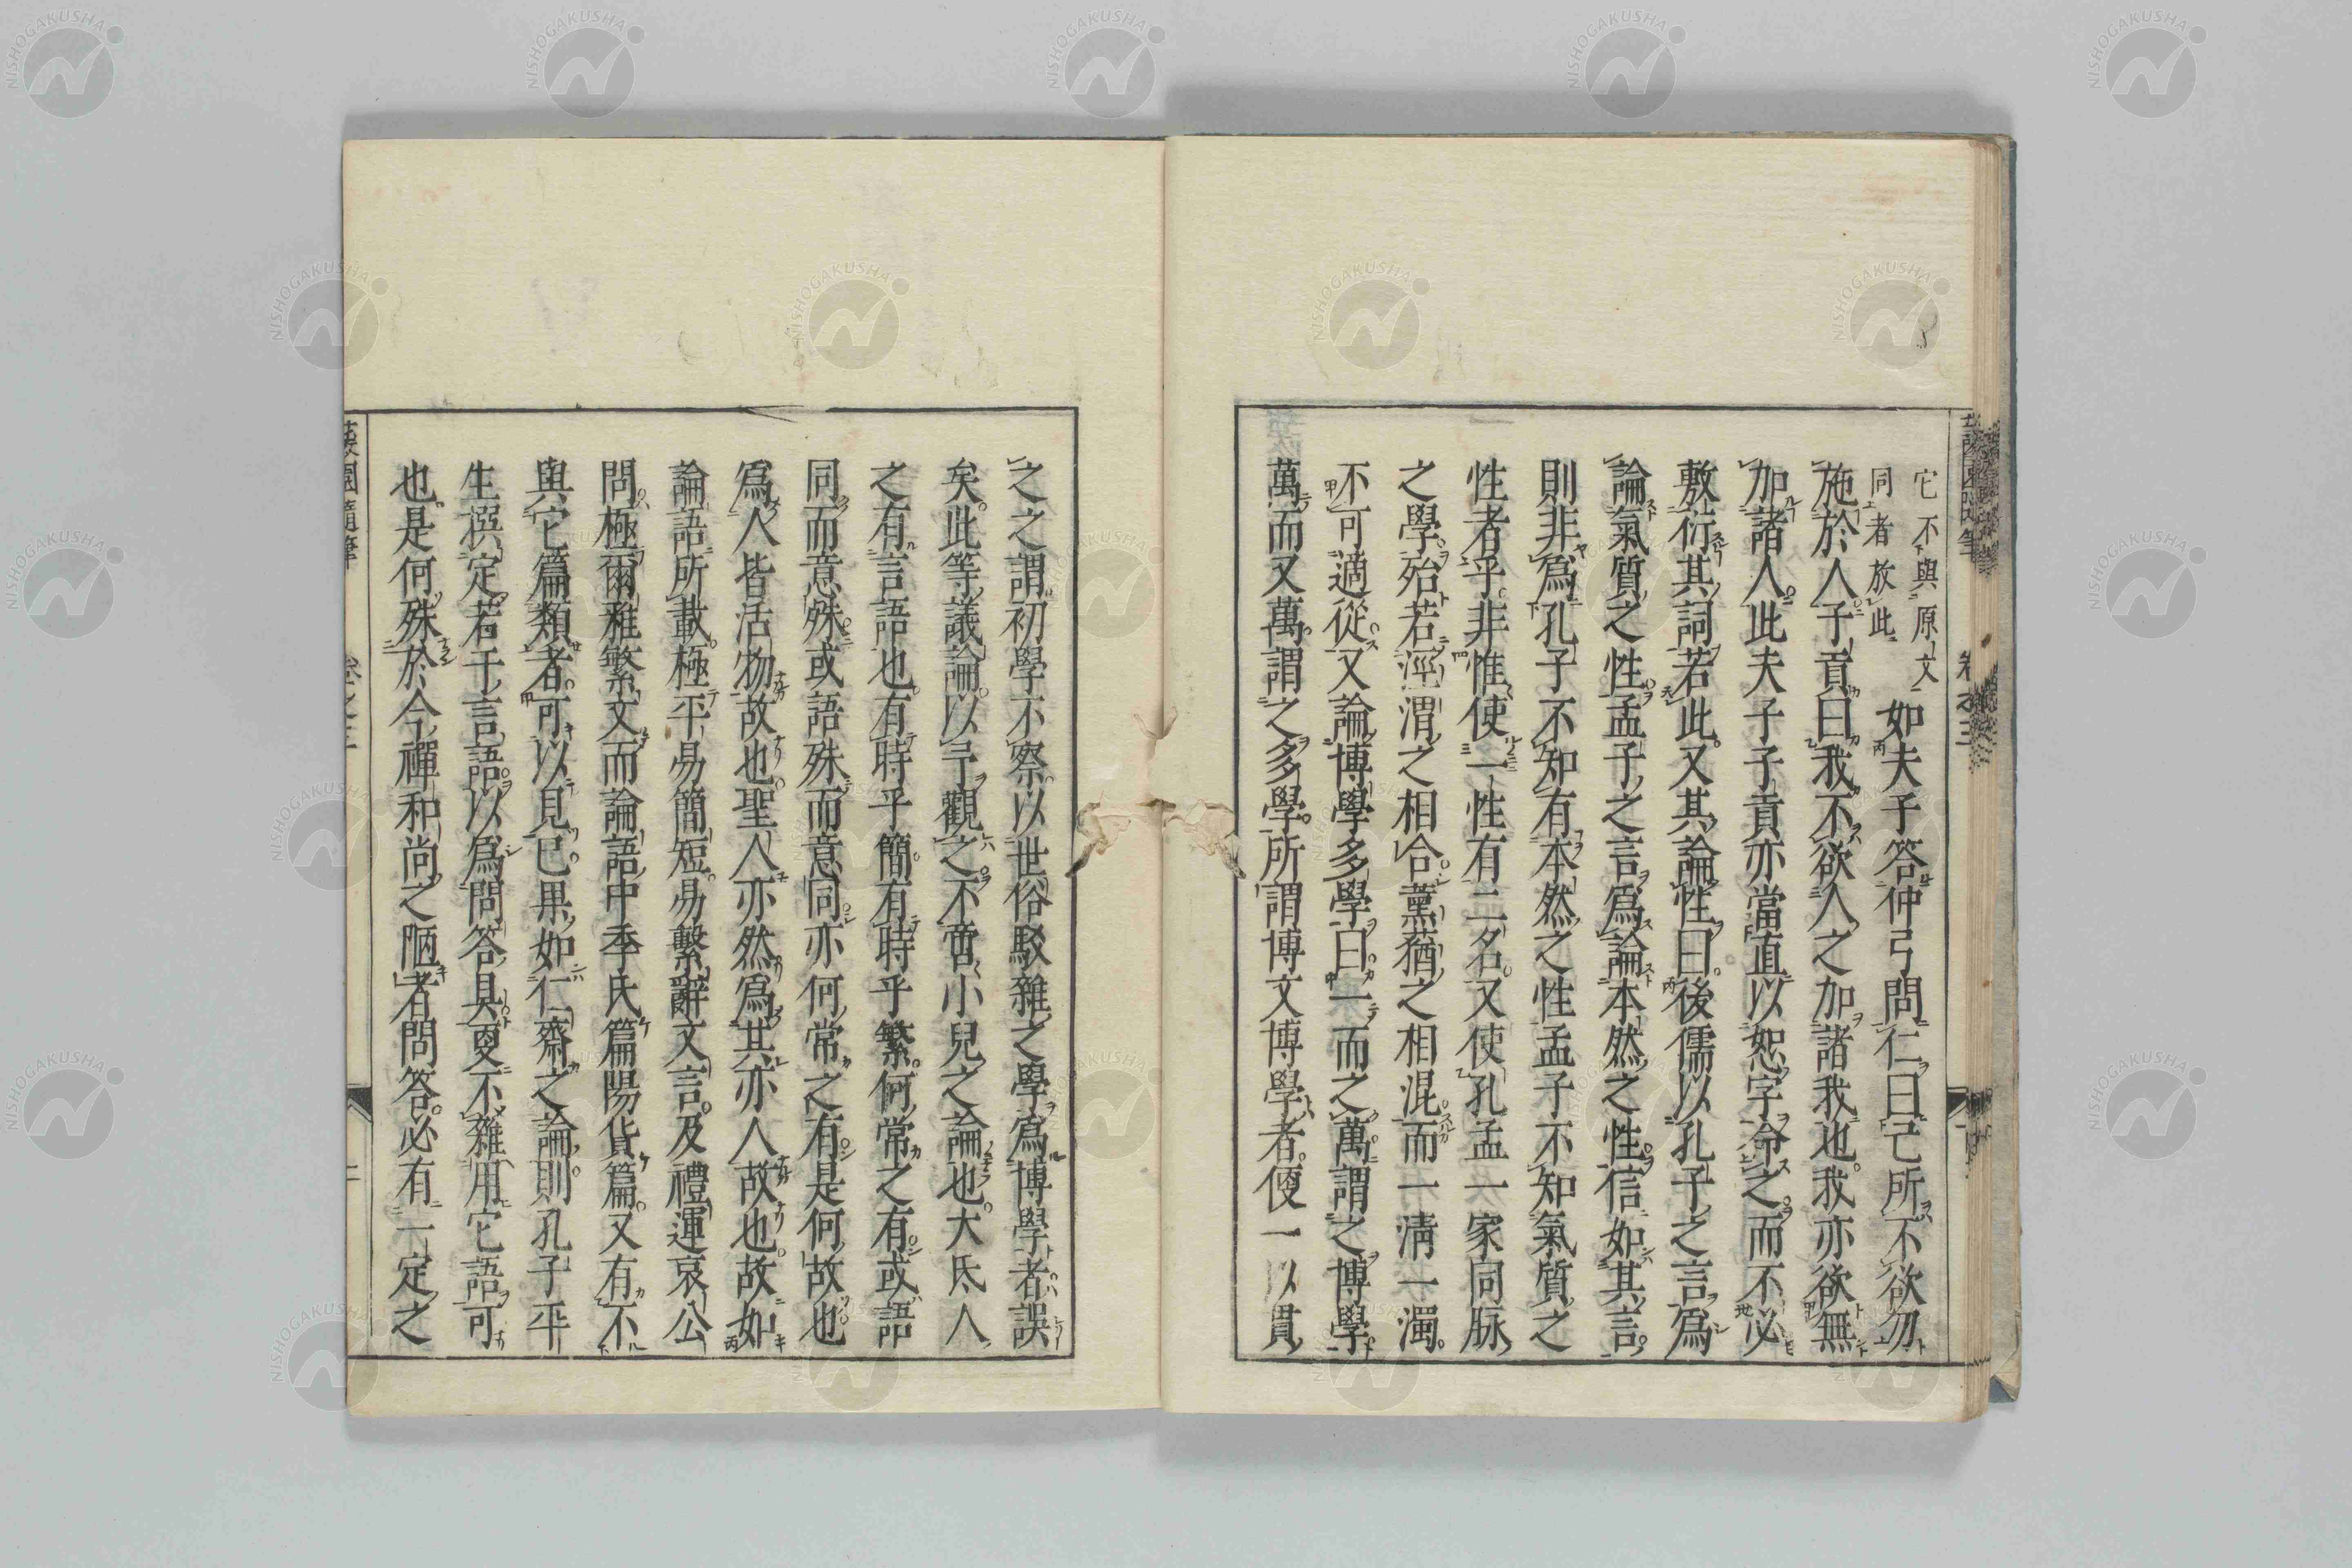 它不與原文
同者放此
如夫子答仲弓問仁曰己所不欲勿
施於人子貢曰我不欲人之加諸我也我亦欲無
加諸人此夫子子貢亦當直以恕字命之而不必
敷衍其詞若此又其論性曰後儒以孔子之言爲
論氣質之性孟子之言爲論本然之性信如其言
則非爲孔子不知有本然之性孟子不知氣質之
性者乎非惟使一性有二名又使孔孟一家同脉
之學殆若涇渭之相合薰蕕之相混而一清一濁
不可適從又論博學多學曰一而之萬謂之博學
萬而又萬謂之多學所謂博文博學者便一以貫
之之謂初學不察以世俗駁雜之學爲博學者誤
矣此等議論以予觀之不啻小兒之論也大氐人
之有言語也有時乎簡有時乎繁何常之有或語
同而意殊或語殊而意同亦何常之有是何故也
爲人皆活物故也聖人亦然爲其亦人故也故如
論語所載極平易簡短易繫辭文言及禮運哀公
問極爾雅繁文而論語中季氏篇陽貨篇又有不
與它篇類者可以見已果如仁齋之論則孔子平
生撰定若干言語以爲問答具更不雜用它語可
也是何殊於今禪和尚之陋者問答必有一定之
蘐園隨筆
卷之三
二
NISHOGAKUSHA